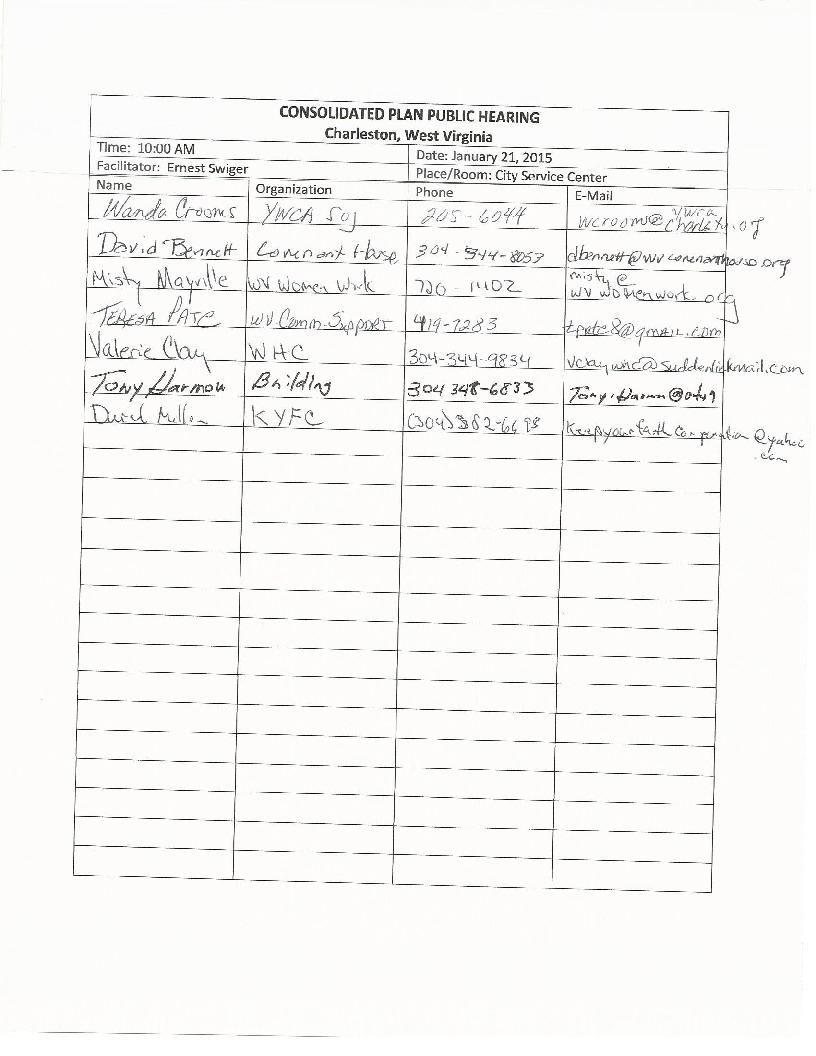 CONSOLIDATED PLAN PUBLIC HEARING
Charleston, West Virginia
Time: 10:00 AM Date: January 21, 2015
Facilitator: Ernest Swiger Place/Room: City Service Center
Name Organization Phone E-Mail
Wanda Crooms YWCA SOJ 205-6044 wcrooms@ywca
.org
David Bennett Covenant House 304-344-8053 dbennett@wvcovenanthouse.org
Misty Mayville WV Women Work 720-1402 misty@
wvwomenwork.org
TERESA PATE WV Comm. Support 419-7283 tpate28@gmail.com
Valerie Clay WHC 304-344-9834 vclaywhc@suddenlinkmail.com
Tony Harmon Building 304 348-6833
KYFC (304) 382-6698 Keepyourfaith Corporation@yahoo
.com